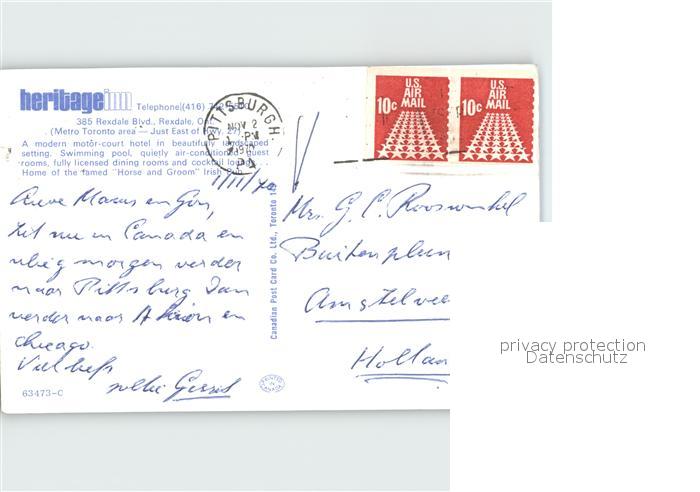 heritage inn Telephone (416)
385 Rexdale Blvd., Rexdale, Ont.
(Metro Toronto area — Just East of Hwy. 27)
A modern motor-court hotel in beautifully landscaped
setting. Swimming pool, quietly air-conditioned guest
rooms, fully licensed dining rooms and cocktail lounge.
Home of the famed "Horse and Groom" Irish Pub
PITTSBURGH,
NOV 2
PM
PA
U.S.
AIR
MAIL
10c
U.S.
AIR
MAIL
10c
1/11/70
en
zit nu in Canada en
vlieg morgen verder
naar Pittsburg dan
verder naar en
Chicago.
Veel liefs
63473-C
Canadian Post Card Co. Ltd., Toronto
Mrs. G. C.
Buitenplein
Amstelvee
Hollan
privacy protection
Datenschutz